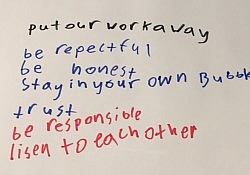 put our work away
be repectful
be honest
Stay in your own Bubble
trust
be responsible
lisen to each other